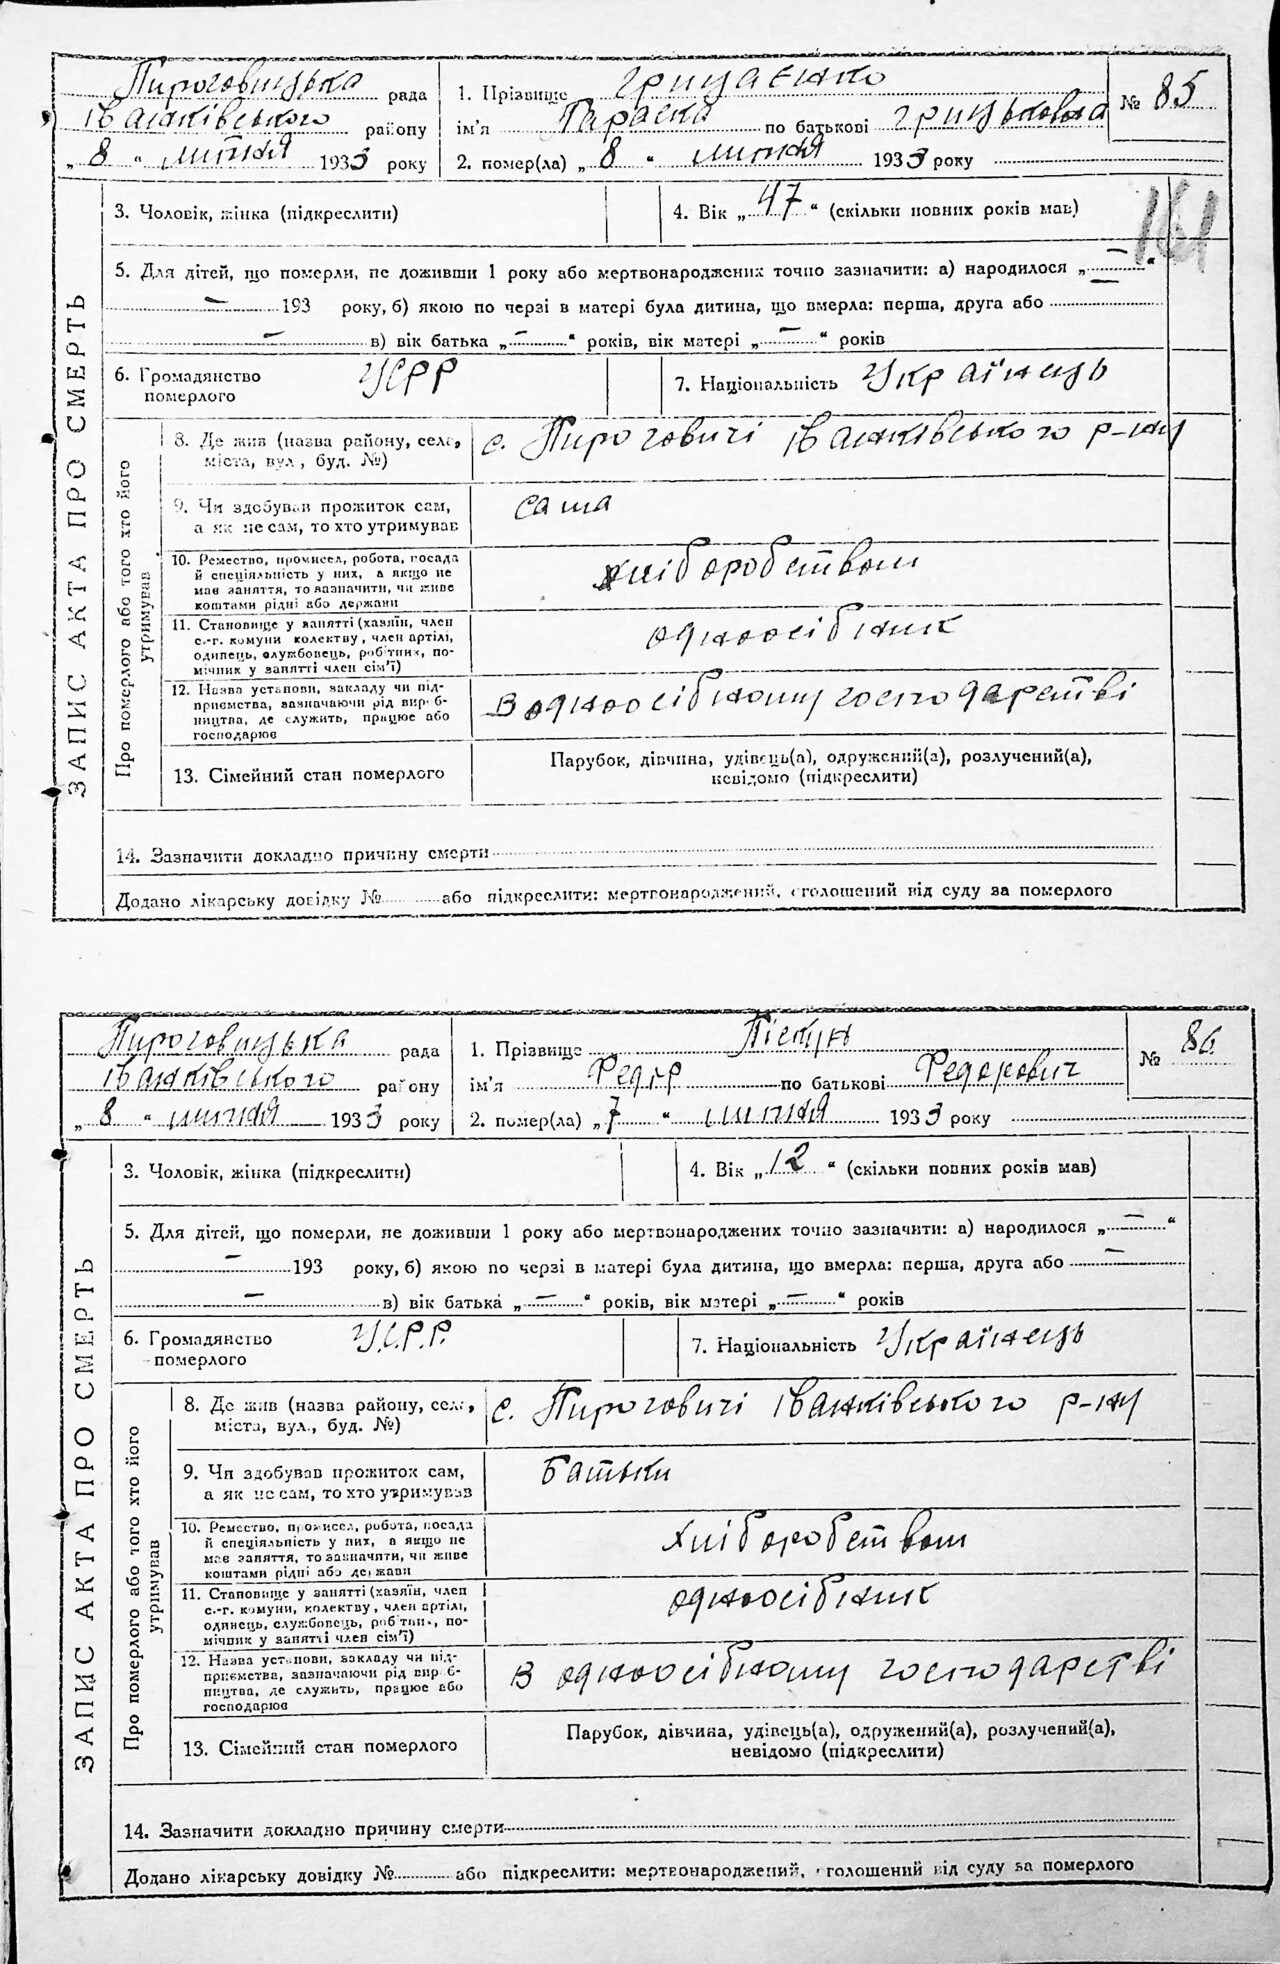 Пироговицька рада
Іванківського району
„ 8 “ липня 1933 року
1. Прізвище Грищенко
ім’я Параска по батькові Грицькова
2. помер(ла) „ 8 “ липня 1933 року
№ 85
161
ЗАПИС АКТА ПРО СМЕРТЬ
3. Чоловік, жінка (підкреслити)
4. Вік „ 47 “ (скільки повних років мав)
5. Для дітей, що померли, не доживши 1 року або мертвонароджених точно зазначити: а) народилося „ — “
— 193 року, б) якою по черзі в матері була дитина, що вмерла: перша, друга або —
— в) вік батька „ — “ років, вік матері „ — “ років
6. Громадянство УСРР
померлого
7. Національність Українець
Про померлого або того хто його
утримував
8. Де жив (назва району, село,
міста, вул., буд. №)
с. Пироговичі Іванківського р-ну
9. Чи здобував прожиток сам,
а як не сам, то хто утримував
сама
10. Ремество, промисел, робота, посада
й спеціяльність у них, а якщо не
має заняття, то зазначити, чи живе
коштами рідні або держави
хліборобством
11. Становище у занятті (хазяїн, член
с.-г. комуни колективу, член артілі,
одинець, службовець, робітник, по-
мічник у занятті член сім’ї)
одноосібник
12. Назва установи, закладу чи під-
приємства, зазначаючи рід вироб-
ництва, де служить, працює або
господарює
В одноосібному господарстві
13. Сімейний стан померлого
Парубок, дівчина, удівець(а), одружений(а), розлучений(а),
невідомо (підкреслити)
14. Зазначити докладно причину смерти
Додано лікарську довідку № або підкреслити: мертвонароджений, оголошений від суду за померлого
Пироговицька рада
Іванківського району
„ 8 “ липня 1933 року
1. Прізвище Піскун
ім’я Федір по батькові Федорович
2. помер(ла) „ 7 “ липня 1933 року
№ 86
ЗАПИС АКТА ПРО СМЕРТЬ
3. Чоловік, жінка (підкреслити)
4. Вік „ 12 “ (скільки повних років мав)
5. Для дітей, що померли, не доживши 1 року або мертвонароджених точно зазначити: а) народилося „ — “
— 193 року, б) якою по черзі в матері була дитина, що вмерла: перша, друга або —
— в) вік батька „ — “ років, вік матері „ — “ років
6. Громадянство У.С.Р.Р.
померлого
7. Національність Українець
Про померлого або того хто його
утримував
8. Де жив (назва району, село,
міста, вул., буд. №)
с. Пироговичі Іванківського р-ну
9. Чи здобував прожиток сам,
а як не сам, то хто утримував
Батьки
10. Ремество, промисел, робота, посада
й спеціяльність у них, а якщо не
має заняття, то зазначити, чи живе
коштами рідні або держави
хліборобством
11. Становище у занятті (хазяїн, член
с.-г. комуни, колективу, член артілі,
одинець, службовець, робітник, по-
мічник у занятті член сім’ї)
одноосібник
12. Назва установи, закладу чи під-
приємства, зазначаючи рід вироб-
ництва, де служить, працює або
господарює
В одноосібному господарстві
13. Сімейний стан померлого
Парубок, дівчина, удівець(а), одружений(а), розлучений(а),
невідомо (підкреслити)
14. Зазначити докладно причину смерти
Додано лікарську довідку № або підкреслити: мертвонароджений, оголошений від суду за померлого